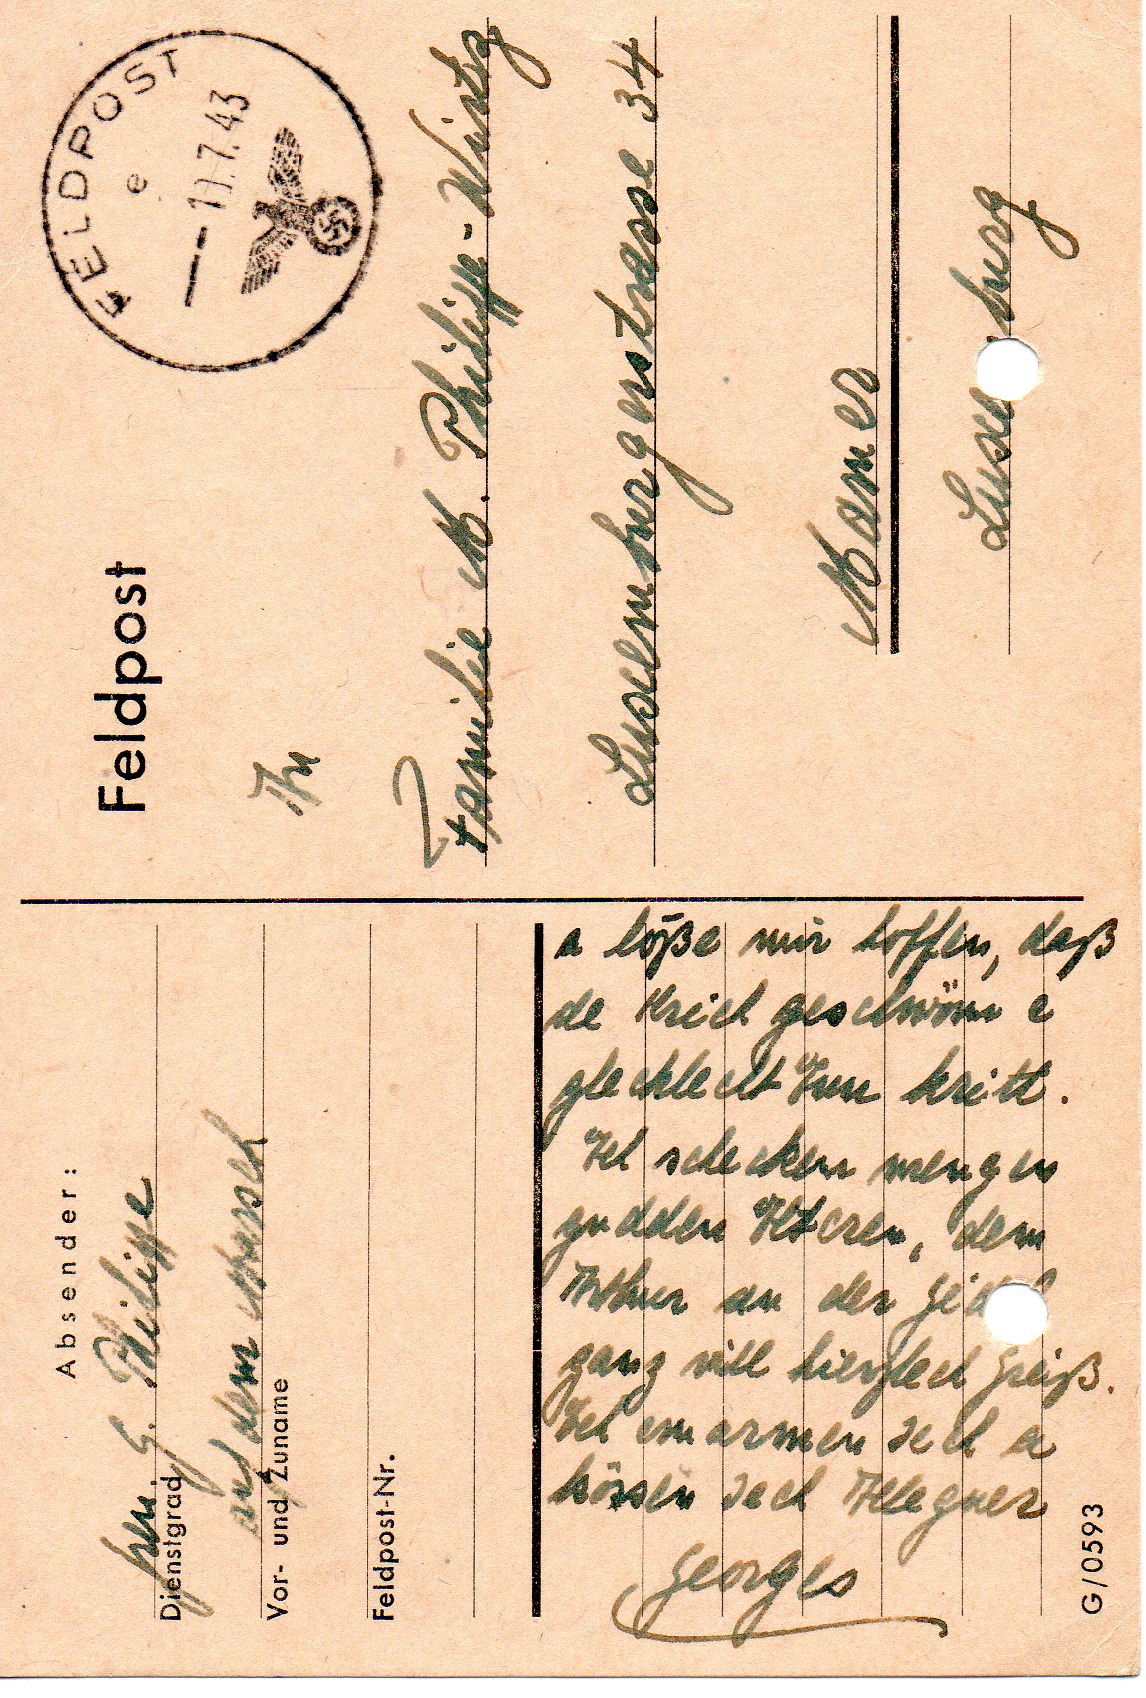 Feldpost
FELDPOST
e
11.7.43
An
Familie M. Philippe-Wirtz
Luxemburgerstrasse 34
Mamer
Luxemburg
Absender:
Gren. G. Philippe
Dienstgrad
auf dem Marsch
Vor- und Zuname
Feldpost-Nr.
a lòße mir hoffen, daß
de Krich geschwönn e
glecklecht Enn kritt.
Ech schecken mengen
gudden Elteren, dem
Arthur an der
ganz vill hierzlech Greiß.
Ech emarmen Iech a
kössen Iech
Georges
G/0593